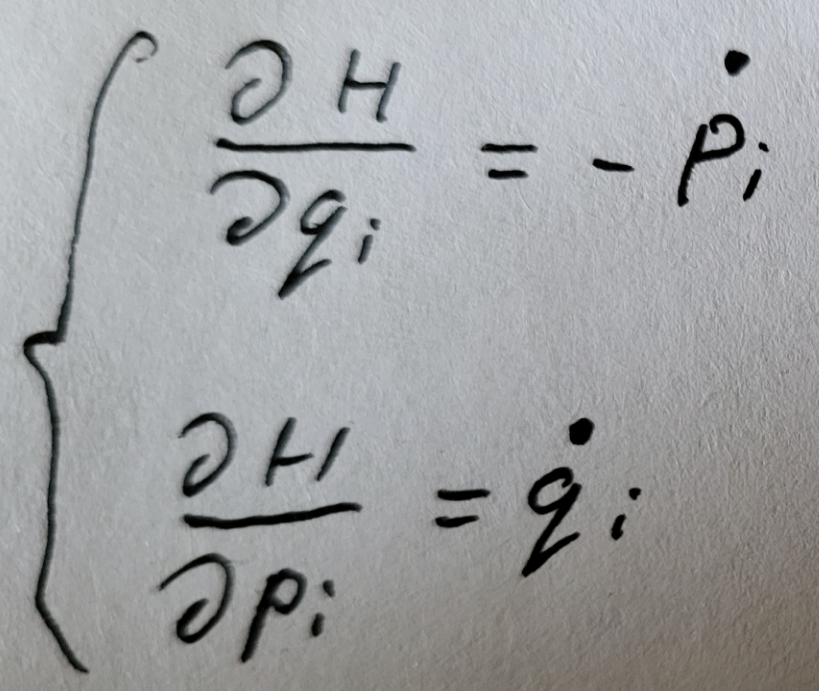 ∂H/∂qᵢ = - ṗᵢ
∂H/∂pᵢ = q̇ᵢ